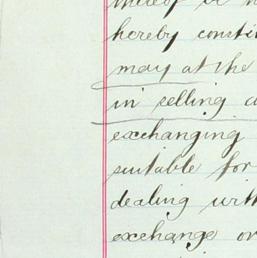 hereby consti
may at the
in selling a
exchanging
suitable for
dealing with
exchange or